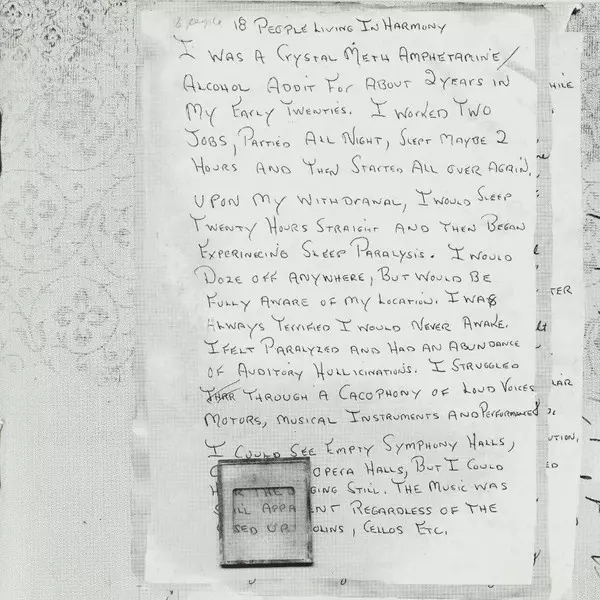 18 people
18 PEOPLE LIVING IN HARMONY
I WAS A CRYSTAL METH AMPHETAMINE/
ALCOHOL ADDIT FOR ABOUT 2 YEARS IN
MY EARLY TWENTIES. I WORKED TWO
JOBS, PARTIED ALL NIGHT, SLEPT MAYBE 2
HOURS AND THEN STARTED ALL OVER AGAIN.
UPON MY WITHDRAWAL, I WOULD SLEEP
TWENTY HOURS STRAIGHT AND THEN BEGAN
EXPERINECING SLEEP PARALYSIS. I WOULD
DOZE OFF ANYWHERE, BUT WOULD BE
FULLY AWARE OF MY LOCATION. I WAS
ALWAYS TERRIFIED I WOULD NEVER AWAKE.
I FELT PARALYZED AND HAD AN ABUNDANCE
OF AUDITORY HULLICINATIONS. I STRUGGLED
THROUGH A CACOPHONY OF LOUD VOICES
MOTORS, MUSICAL INSTRUMENTS AND PERFORMANCES.
I COULD SEE EMPTY SYMPHONY HALLS,
OPERA HALLS, BUT I COULD
GING STILL. THE MUSIC WAS
ILL APPA ENT REGARDLESS OF THE
SED UP OLINS, CELLOS ETC.
HILE
TER
LAR
UTION,
ED